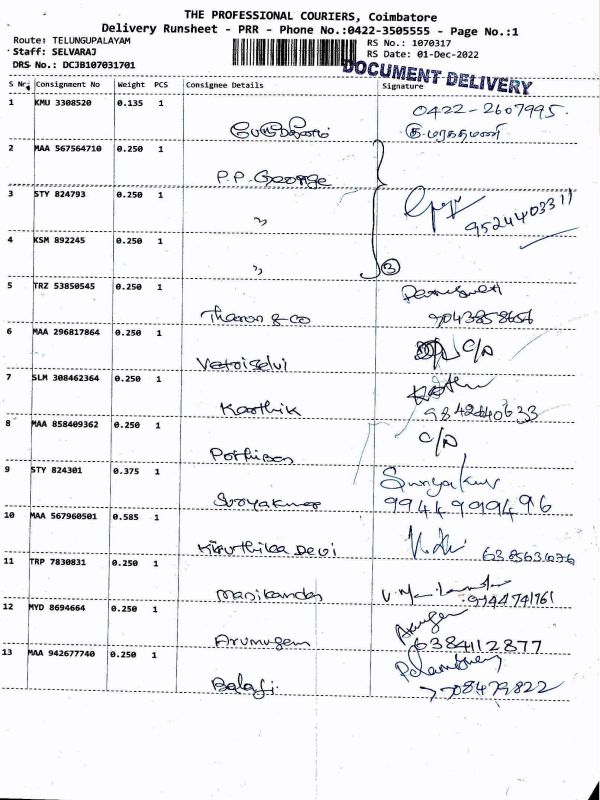 THE PROFESSIONAL COURIERS, Coimbatore
Delivery Runsheet - PRR - Phone No.:0422-3505555 - Page No.:1
Route: TELUNGUPALAYAM RS No.: 1070317
Staff: SELVARAJ RS Date: 01-Dec-2022
DRS No.: DCJB107031701 DOCUMENT DELIVERY
S Nr. Consignment No Weight PCS Consignee Details Signature
1 KMU 3308520 0.135 1 0422-2607995.
2 MAA 567564710 0.250 1
P.P. George
3 STY 824793 0.250 1
9524403311
"
4 KSM 892245 0.250 1
"
5 TRZ 53850545 0.250 1
Tharon & co 9043858656
6 MAA 296817864 0.250 1 C/D
Vetriselvi
7 SLM 308462364 0.250 1
Karthik 9842640633
8 MAA 858409362 0.250 1 C/D
9 STY 824301 0.375 1 Suriyakumar
Suryakumar 9944999496
10 MAA 567960501 0.585 1
Kiruthika Devi 6385631676
11 TRP 7830831 0.250 1
Manikandan 9144741761
12 MYD 8694664 0.250 1
Arumugem 6384112877
13 MAA 942677740 0.250 1
Balaji 7708479822